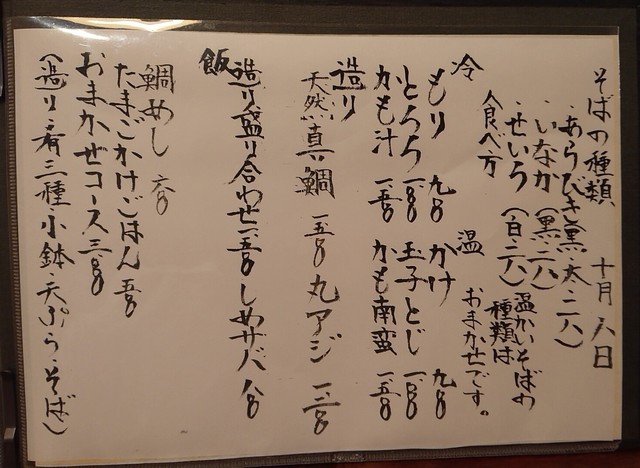 そばの種類　十月六日
・あらびき（黒・太・二八）
・いなか（黒・二八）
・せいろ（白・二八）
温かいそばの
種類は
おまかせです。
食べ方
冷
もり 九〇〇
とろろ 一一〇〇
かも汁 一五〇〇
温
かけ 九〇〇
玉子とじ 一一〇〇
かも南蛮 一五〇〇
造り
天然真鯛 一五〇〇
丸アジ 一三〇〇
造り盛り合わせ 一五〇〇
しめサバ 八〇〇
飯
鯛めし 六〇〇
たまごかけごはん 五〇〇
おまかせコース 三五〇〇
（造り・肴三種・小鉢・天ぷら・そば）